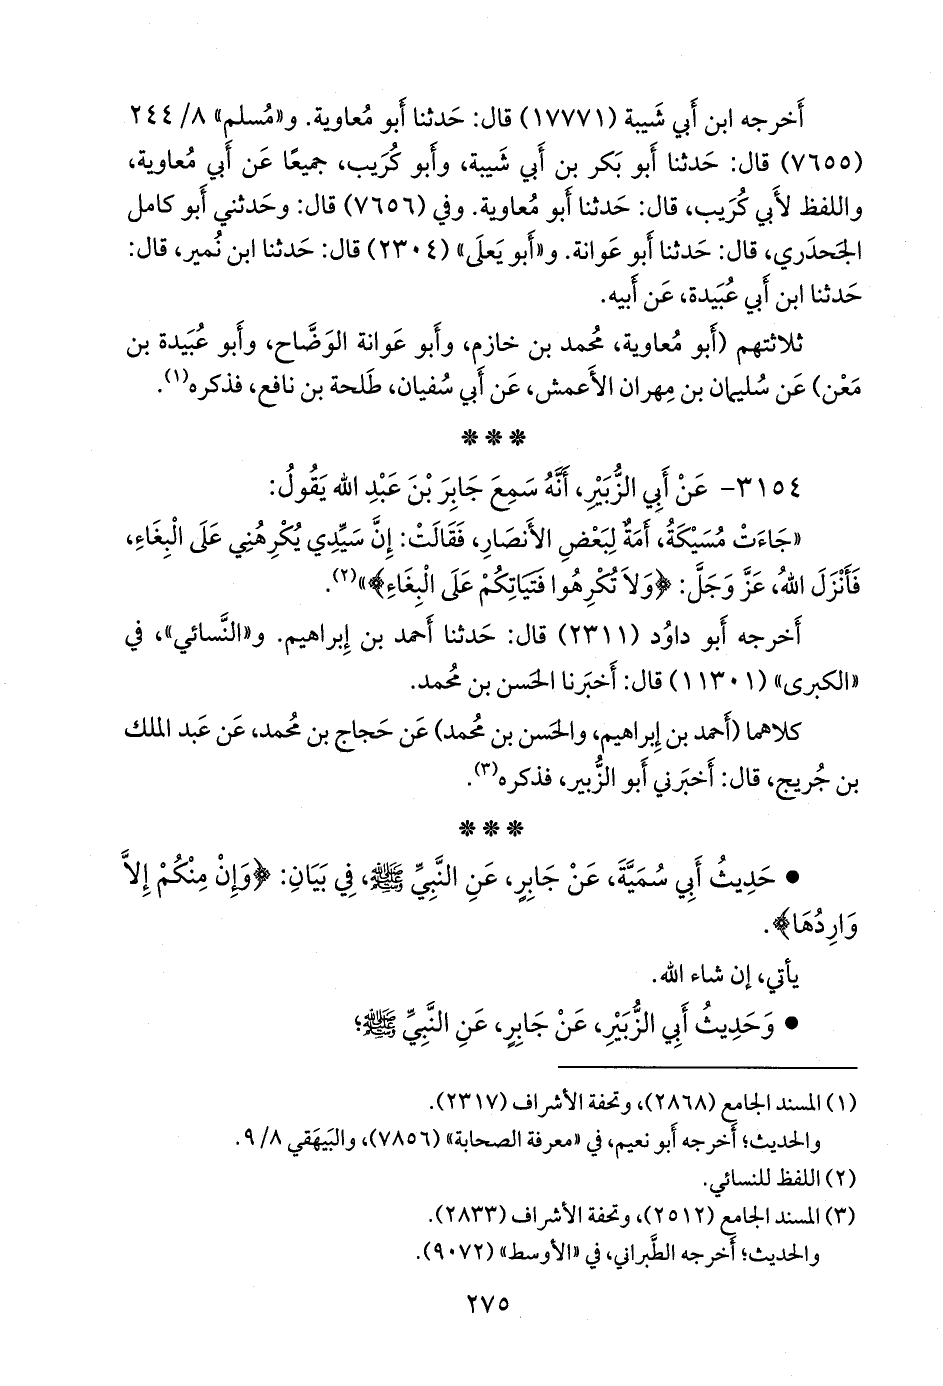 أَخرجه ابن أَبي شَيبة (١٧٧٧١) قال: حَدثنا أَبو مُعاوية. و«مُسلم» ٨/ ٢٤٤
(٧٦٥٥) قال: حَدثنا أَبو بَكر بن أَبي شَيبة، وأَبو كُرَيب، جميعًا عَن أَبي مُعاوية،
واللفظ لأَبي كُرَيب، قال: حَدثنا أَبو مُعاوية. وفي (٧٦٥٦) قال: وحَدثني أَبو كامل
الجَحدَري، قال: حَدثنا أَبو عَوانة. و«أَبو يَعلَى» (٢٣٠٤) قال: حَدثنا ابن نُمير، قال:
حَدثنا ابن أَبي عُبَيدة، عَن أَبيه.
ثلاثتهم (أَبو مُعاوية، مُحمد بن خازم، وأَبو عَوانة الوَضَّاح، وأَبو عُبَيدة بن
مَعْن) عَن سُليمان بن مِهران الأَعمش، عَن أَبي سُفيان، طَلحة بن نافع، فذكره(١).
* * *
٣١٥٤- عَنْ أَبِي الزُّبَيْرِ، أَنَّهُ سَمِعَ جَابِرَ بْنَ عَبْدِ الله يَقُولُ:
«جَاءَتْ مُسَيْكَةُ، أَمَةٌ لِبَعْضِ الأَنْصَارِ، فَقَالَتْ: إِنَّ سَيِّدِي يُكْرِهُنِي عَلَى الْبِغَاءِ،
فَأَنْزَلَ اللهُ، عَزَّ وَجَلَّ: ﴿وَلاَ تُكْرِهُوا فَتَيَاتِكُمْ عَلَى الْبِغَاءِ﴾»(٢).
أَخرجه أَبو داوُد (٢٣١١) قال: حَدثنا أَحمد بن إِبراهيم. و«النَّسائي»، في
«الكبرى» (١١٣٠١) قال: أَخبَرنا الحَسن بن مُحمد.
كلاهما (أَحمد بن إِبراهيم، والحَسن بن مُحمد) عَن حَجاج بن مُحمد، عَن عَبد الملك
بن جُريج، قال: أَخبَرني أَبو الزُّبير، فذكره(٣).
* * *
• حَدِيثُ أَبِي سُمَيَّةَ، عَنْ جَابِرٍ، عَنِ النَّبِيِّ ﷺ، فِي بَيَانِ: ﴿وَإِنْ مِنْكُمْ إِلاَّ
وَارِدُهَا﴾.
يأتي، إن شاء الله.
• وَحَدِيثُ أَبِي الزُّبَيْرِ، عَنْ جَابِرٍ، عَنِ النَّبِيِّ ﷺ؛
(١) المسند الجامع (٢٨٦٨)، وتحفة الأشراف (٢٣١٧).
والحديث؛ أَخرجه أَبو نعيم، في «معرفة الصحابة» (٧٨٥٦)، والبَيهَقي ٨/ ٩.
(٢) اللفظ للنسائي.
(٣) المسند الجامع (٢٥١٢)، وتحفة الأشراف (٢٨٣٣).
والحديث؛ أَخرجه الطَّبراني، في «الأوسط» (٩٠٧٢).
٢٧٥